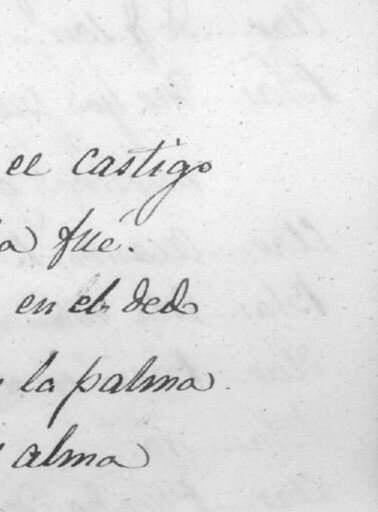 el castigo
a fué.
en el dedo
la palma
alma